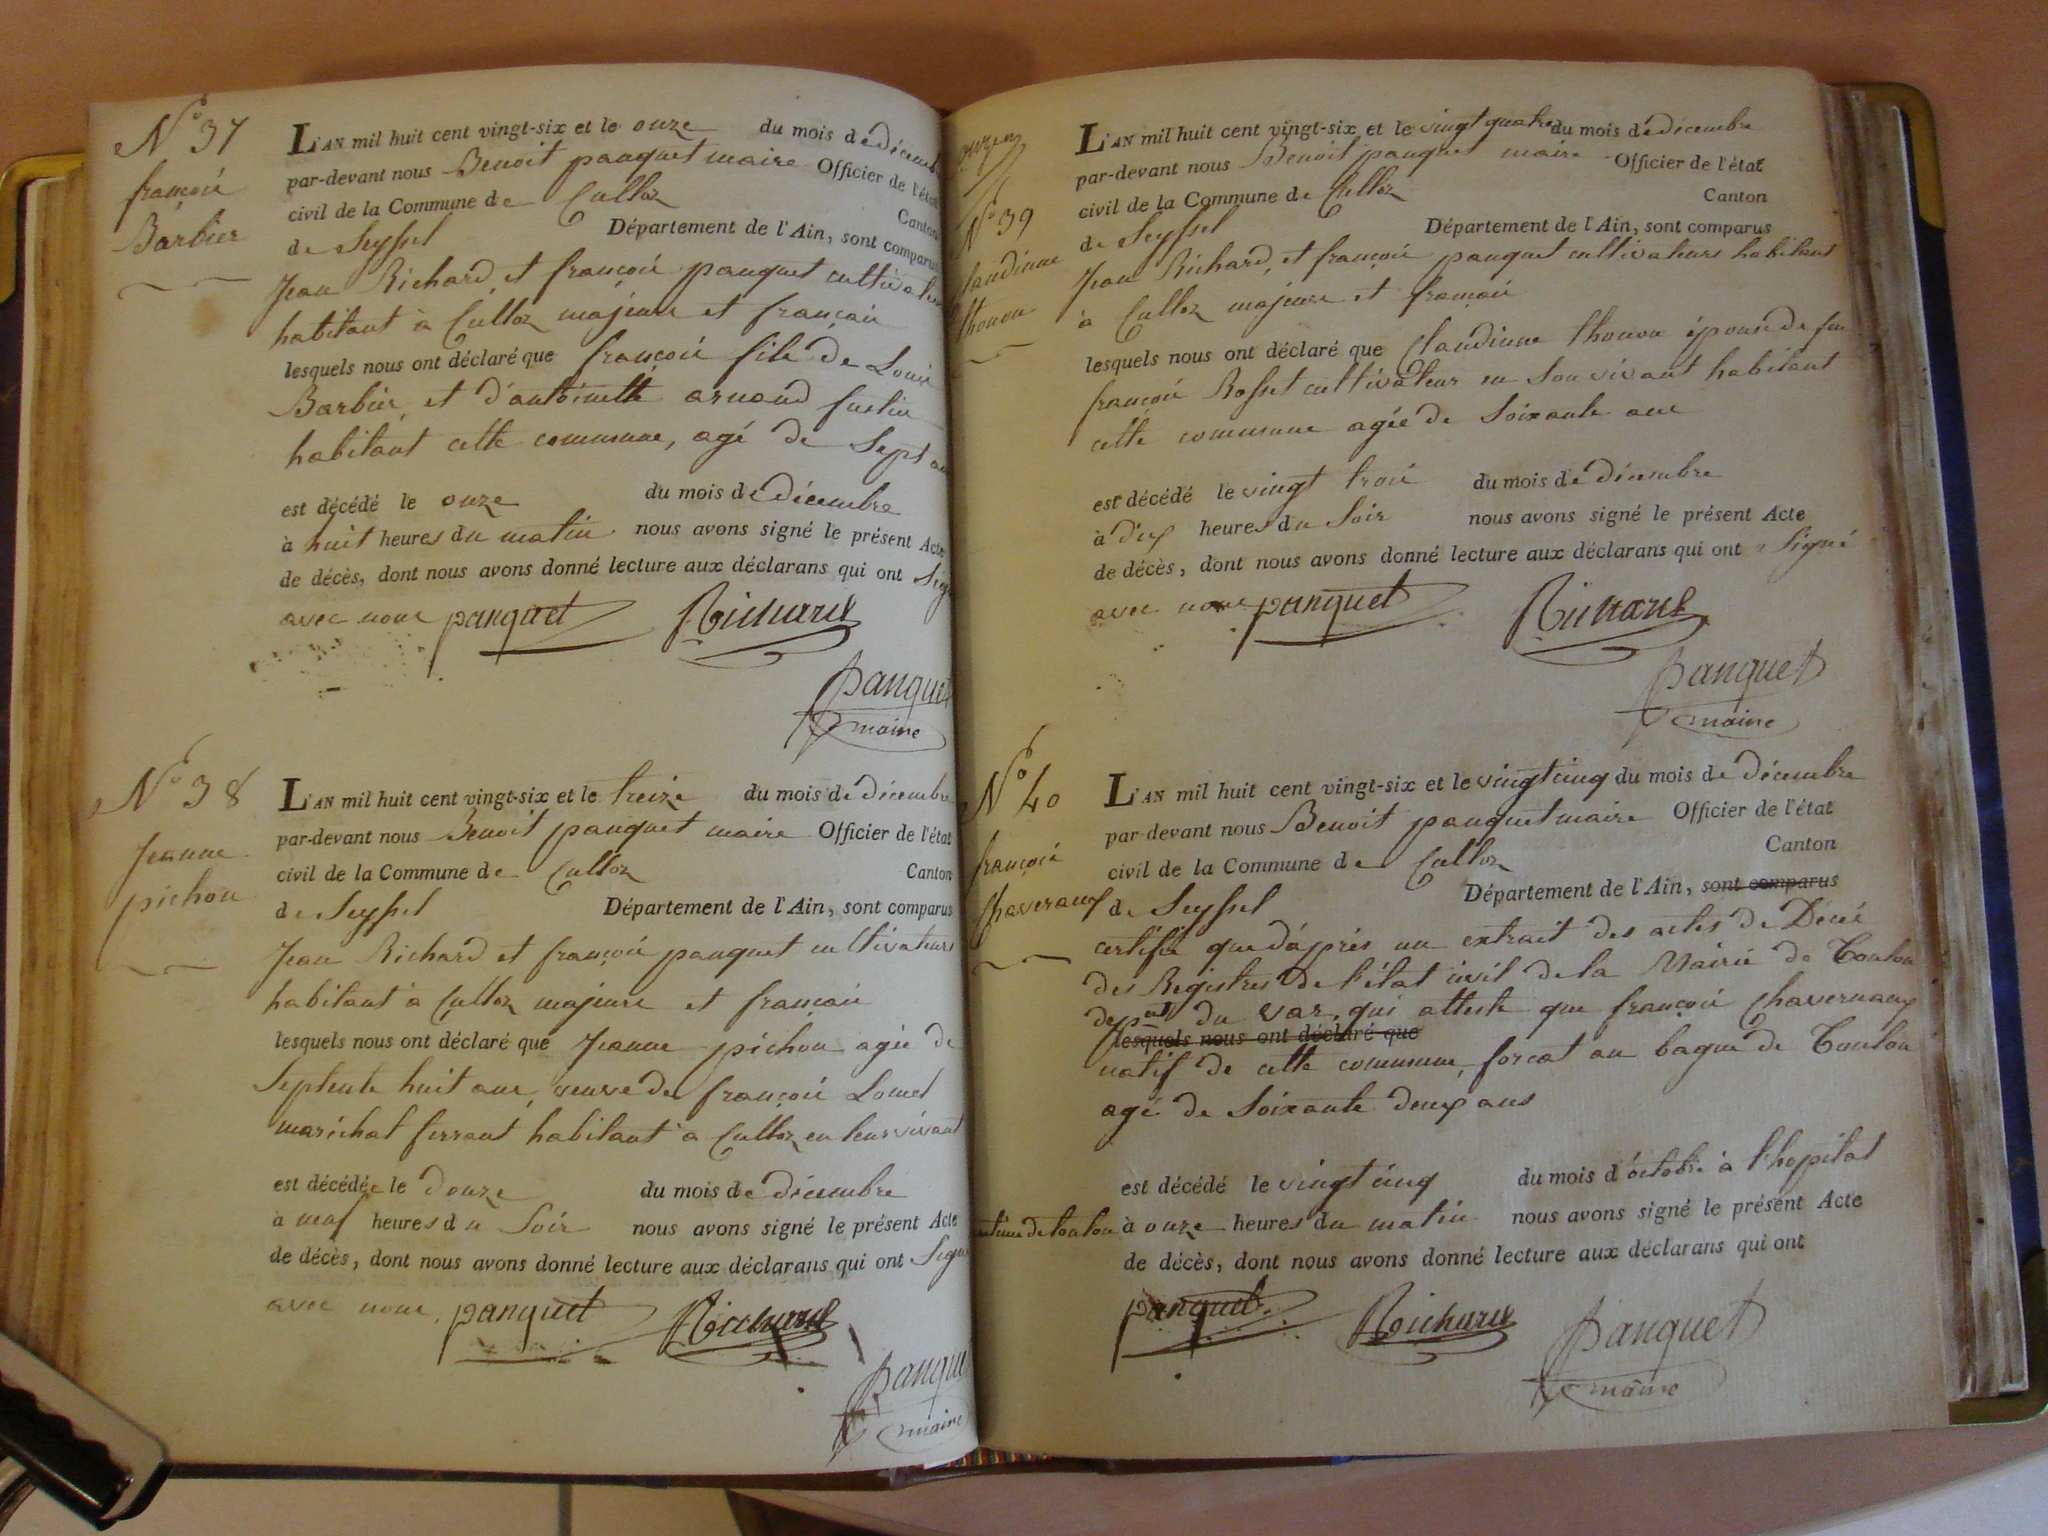 N° 37
françois
Barbier
L'AN mil huit cent vingt-six et le onze du mois de décembre
par-devant nous Benoit panquet maire Officier de l'état
civil de la Commune de Culloz Canton
de Seyssel Département de l'Ain, sont comparus
Jean Richard, et françois panquet cultivateurs
habitant à Culloz majeurs et français
lesquels nous ont déclaré que françois fils de Louis
Barbier, et d'antoinette arnaud
habitant cette commune, agé de Sept ans
est décédé le onze du mois de décembre
à huit heures du matin nous avons signé le présent Acte
de décès, dont nous avons donné lecture aux déclarans qui ont Signé
avec nous panquet Richard
panquet
maire
N° 38
Jeanne
pichon
L'AN mil huit cent vingt-six et le treize du mois de décembre
par-devant nous Benoit panquet maire Officier de l'état
civil de la Commune de Culloz Canton
de Seyssel Département de l'Ain, sont comparus
Jean Richard et françois panquet cultivateurs
habitant à Culloz majeurs et français
lesquels nous ont déclaré que Jeanne pichon agée de
Septente huit ans, veuve de françois
maréchal ferrant habitant à Culloz en leur vivant
est décédée le douze du mois de décembre
à neuf heures du Soir nous avons signé le présent Acte
de décès, dont nous avons donné lecture aux déclarans qui ont Signé
avec nous panquet Richard
panquet
maire
N° 39
Claudinne
thonon
L'AN mil huit cent vingt-six et le vingt quatre du mois de décembre
par-devant nous Benoit panquet maire Officier de l'état
civil de la Commune de Culloz Canton
de Seyssel Département de l'Ain, sont comparus
Jean Richard, et françois panquet cultivateurs habitant
à Culloz majeurs et français
lesquels nous ont déclaré que Claudinne thonon épouse de feu
françois Rosset cultivateur en Son vivant habitant
cette commune agée de Soixante ans
est décédé le vingt trois du mois de décembre
à dix heures du Soir nous avons signé le présent Acte
de décès, dont nous avons donné lecture aux déclarans qui ont Signé
avec nous panquet Richard
panquet
maire
N° 40
françois
Chavernaux
L'AN mil huit cent vingt-six et le vingt cinq du mois de décembre
par-devant nous Benoit panquet maire Officier de l'état
civil de la Commune de Culloz Canton
de Seyssel Département de l'Ain, sont comparus
certifié que d'après un extrait des actes de Décès
des Registres de l'état civil de la Mairie de Toulon
du var, qui atteste que françois Chavernaux
lesquels nous ont déclaré que
natif de cette commune, forcat au bagne de Toulon
agé de Soixante deux ans
est décédé le vingt cinq du mois d'octobre à l'hopital
de toulon à onze heures du matin nous avons signé le présent Acte
de décès, dont nous avons donné lecture aux déclarans qui ont
panquet Richard panquet
maire